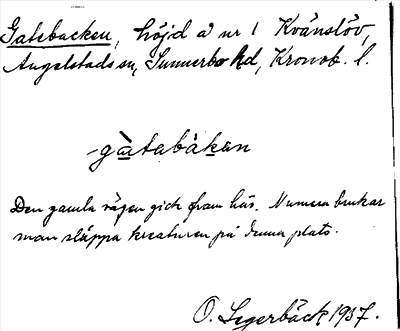 Gatebacken, höjd å nr 1 Kvänslöv,
Angelstads sn, Sunnerbo hd, Kronob. l.
-gàtabàkan
Den gamla vägen gick fram här. Numera brukar
man släppa kreaturen på denna plats.
O. Segerbäck 1937.